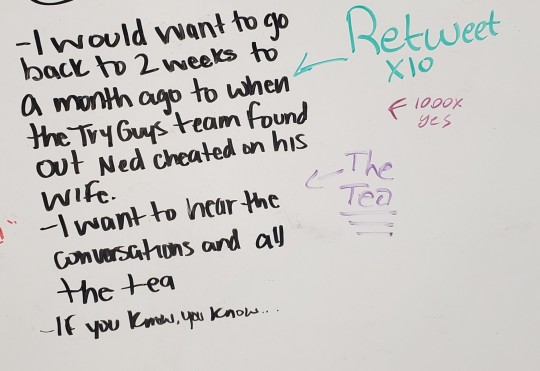 -I would want to go
back to 2 weeks to
a month ago to when
the Try Guys team found
out Ned cheated on his
wife.
-I want to hear the
conversations and all
the tea
-If you know, you know...
Retweet
x10
1000x
yes
The
Tea